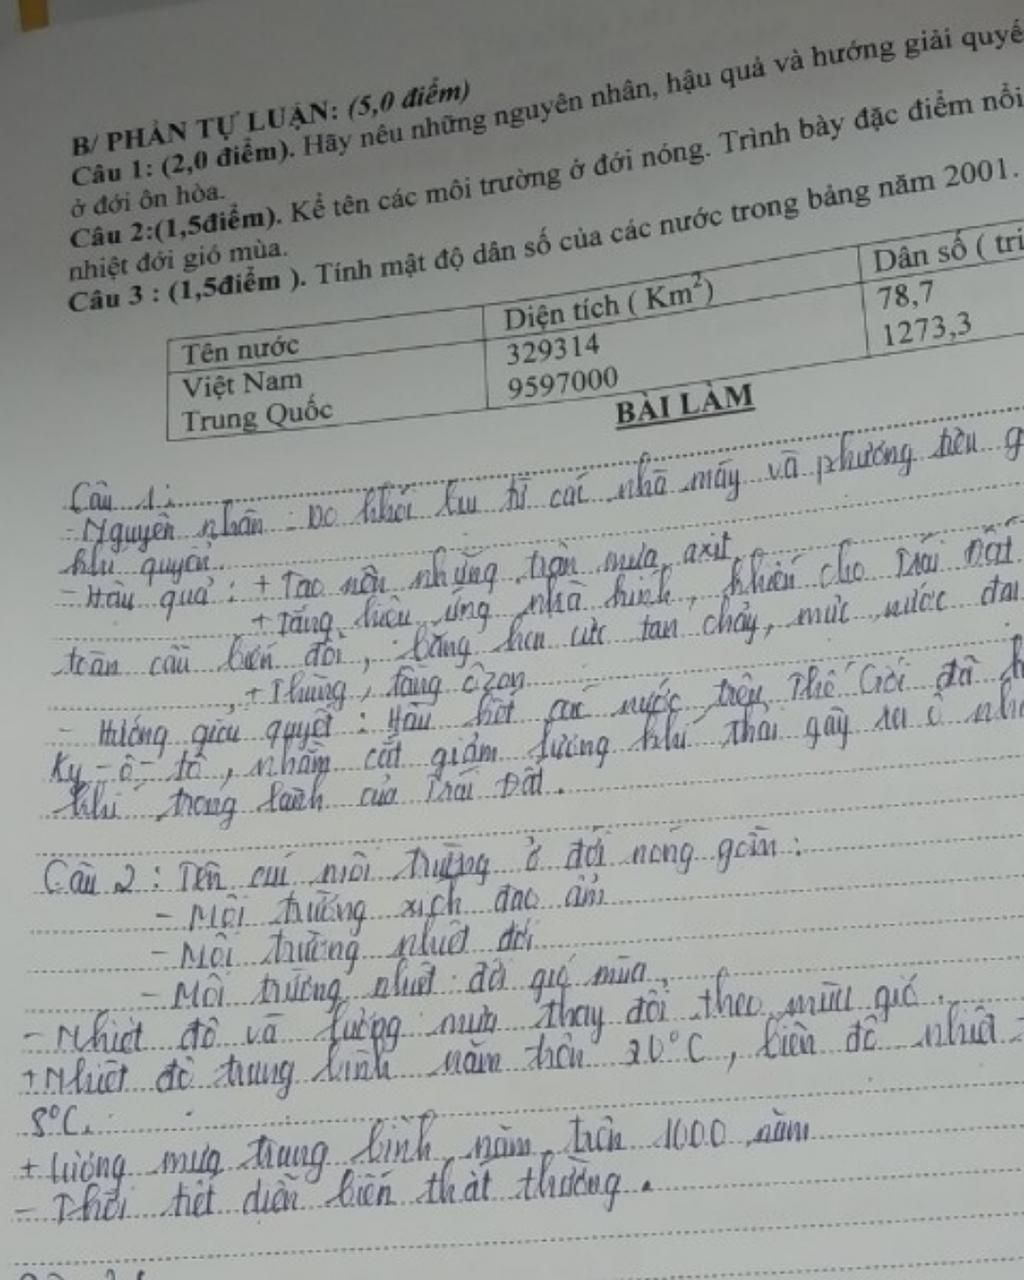 B/ PHẦN TỰ LUẬN: (5,0 điểm)
Câu 1: (2,0 điểm). Hãy nêu những nguyên nhân, hậu quả và hướng giải quyế
ở đới ôn hòa.
Câu 2:(1,5điểm). Kể tên các môi trường ở đới nóng. Trình bày đặc điểm nổi
nhiệt đới gió mùa.
Câu 3 : (1,5điểm ). Tính mật độ dân số của các nước trong bảng năm 2001.
Tên nước Diện tích ( Km²) Dân số ( tri
Việt Nam 329314 78,7
Trung Quốc 9597000 1273,3
BÀI LÀM
Câu 1:
- Nguyên nhân : Do khói bụi từ các nhà máy và phương tiện g
khí quyển.
- Hậu quả : + Tạo nên những trận mưa axit.
+ Tăng hiệu ứng nhà kính, khiến cho Trái Đất
toàn cầu biến đổi, băng hai cực tan chảy, mức nước đại
+ Thủng tầng ôzon
- Hướng giải quyết : Hầu hết các nước trên Thế Giới đã k
Ky - ô - tô, nhằm cắt giảm lượng khí thải gây ra ô nh
khí trong lành của Trái Đất.
Câu 2 : Tên các môi trường ở đới nóng gồm :
- Môi trường xích đạo ẩm
- Môi trường nhiệt đới
- Môi trường nhiệt đới gió mùa.
- Nhiệt độ và lượng mưa thay đổi theo mùa gió.
+ Nhiệt độ trung bình năm trên 20°C, biên độ nhiệt
8°C.
+ lượng mưa trung bình năm trên 1000 năm
- Thời tiết diễn biến thất thường.